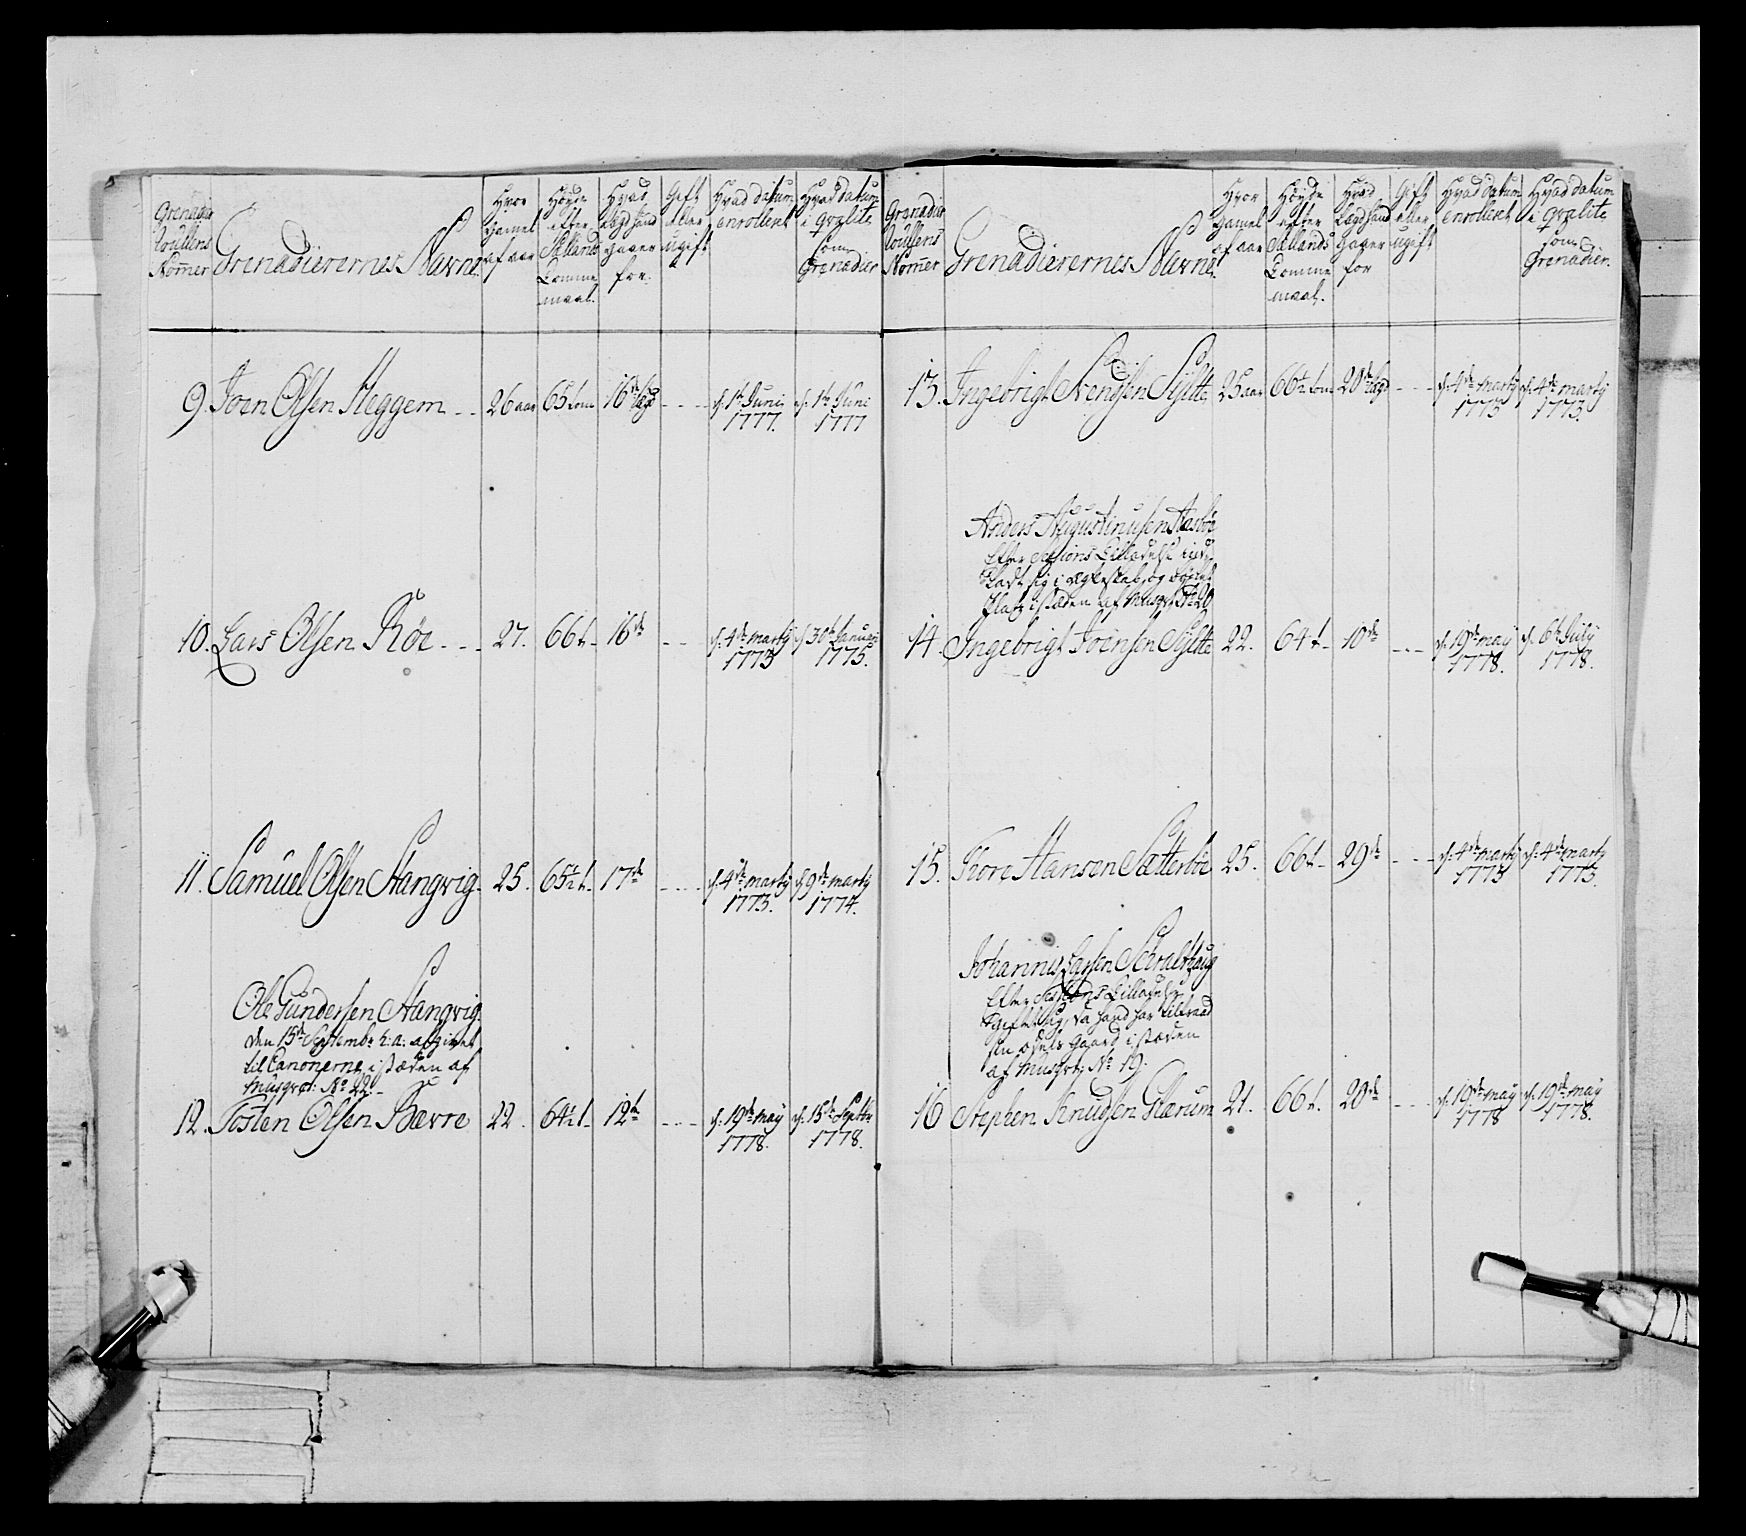 Grenadir
Roullens
Nomer
Grenadierernes Navne.
Hvor
gamel
af aar
Høyde
efter
Siællands
Tomme
maal.
Hvad
Lægd hand
staaer
for.
Gift
eller
ugift
Hvad datum
enrollert
Hvad datum
i qvalite
som
Grenadier
9. Joen Olsen Heggem - - 26 aar 65 tom 16de Lægd - - - d: 1te Juni 1777. d: 1te Juni 1777
10. Lars Olsen Röe - - - 27. 66 t - 16de - - - d: 4de martÿ 1773 d 30te Januarÿ 1775.
11. Samuel Olsen Stangvig - 25. 65½ t - 17de - - - d: 4de martÿ 1773. d 9de martÿ 1774.
Ole Gundersen Stangvig.
den 15de Septembr h: a: afgivet
til Canonerne, i stæden af
Musqvet: No 22 -
12. Tosten Olsen Bævre 22. 64½ t - 12te - - - d: 19de maÿ 1778. d: 15de Septbr 1778.
Grenadier
Roullens
Nomer
Grenadierernes Navne.
Hvor
gamel
af aar
Høyde
efter
Siællands
Tomme
maal.
Hvad
Lægd hand
staaer
for
Gift
eller
ugift
Hvad datum
enrollert
Hvad datum
i qvalite
som
Grenadier.
13. Ingebrigt Svendsen Sylte 25 aar 66½ tom 20de Lægd - - - d: 4de martÿ 1773 d: 4de martÿ 1773.
Anders Augustinusen Aasbøe
Efter Sessions Tilladelse
sig i Egteskab, og
Plads i stæden af Musqvt No 20
14. Ingebrigt Joensen Sylte 22. 64 t - 10de - - - d: 19de maÿ 1778. d: 6te Julÿ 1778.
15. Tore Hansen Sætterböe 25. 66 t - 29de - - - d: 4de martÿ 1773 d: 4de martÿ 1773.
Johannis Larsen
Efter Sessions Tilladelse
giftet sig, da hand har tiltraad
sin odels gaard i stæden
af Musqvt, No 19.
16 Stephen Knudsen Glærum 21. 66 t. 20de - - - d: 19de maÿ 1778 d: 19de maÿ 1778.